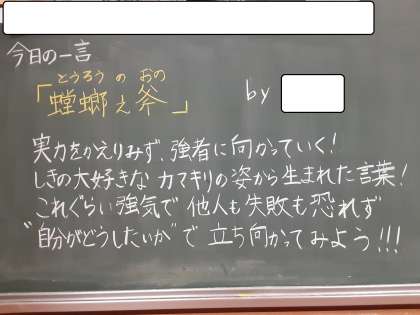 今日の一言
とうろう の おの
「螳螂之斧」
by
実力をかえりみず、強者に向かっていく!
しきの大好きな カマキリの姿から生まれた言葉!
これぐらい強気で 他人も失敗も恐れず
"自分がどうしたいか"で 立ち向かってみよう!!!